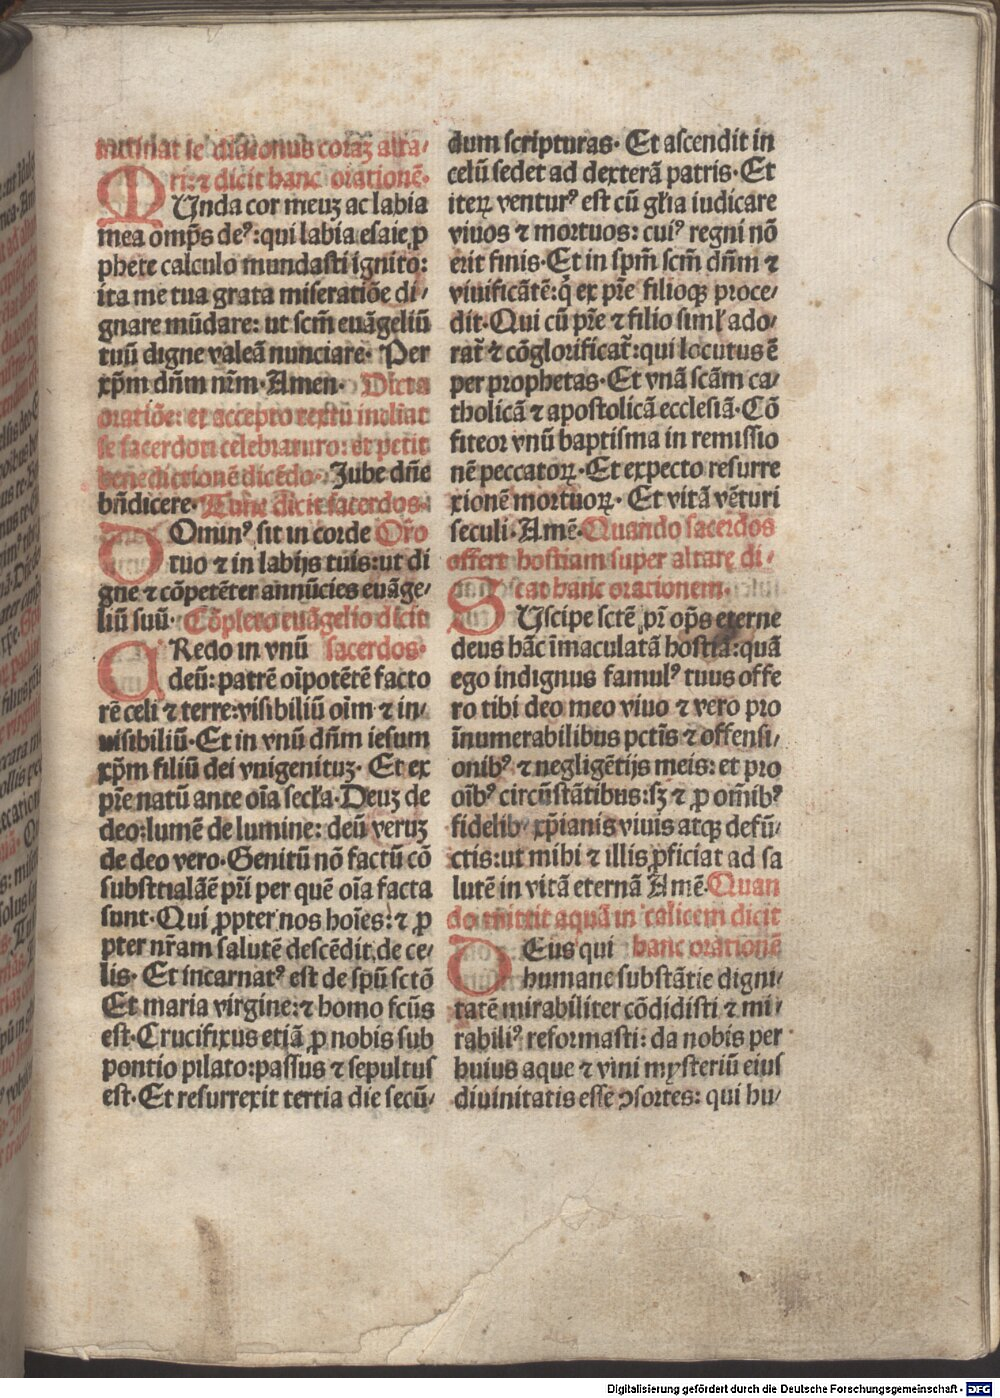 inclinat se diaconus coraȝ alta/
ri: ⁊ dicit hanc orationē·
MUnda cor meuȝ ac labia
mea omp̄s deꝰ: qui labia esaie ꝓ
phete calculo mundasti ignito:
ita me tua grata miseratiōe di/
gnare mūdare: ut scm̄ euāgeliū
tuū digne valeā nunciare· Per
xp̄m dn̄m nrm̄·Amen· Dicta
oratiōe: et accepto textu incliat
se sacerdoti celebraturo: et petit
benedictionē dicēdo· Jube dn̄e
bn̄dicere· Tunc dicit sacerdos·
DOminꝰ sit in corde Oro
tuo ⁊ in labijs tuis: ut di
gne ⁊ cōpetēter annūcies euāge/
liū suū· Cōpleto euāgelio dicit
CRedo in vnū sacerdos·
deū: patrē oīpotētē facto
rē celi ⁊ terre: visibiliū oīm ⁊ in/
uisibiliū·Et in vnū dn̄m iesum
xp̄m filiū dei vnigenituȝ· Et ex
pr̄e natū ante oīa secła·Deuȝ de
deo: lumē de lumine: deū veruȝ
de deo vero·Genitū nō factū cō
substtialāē pr̄i per quē oīa facta
sunt·Qui ꝓpter nos hoīes: ⁊ ꝓ
pter nr̄am salutē descēdit de ce/
lis· Et incarnatꝰ est de spū sctō
Et maria virgine: ⁊ homo fcūs
est·Crucifixus etiā ꝓ nobis sub
pontio pilato: passus ⁊ sepultus
est·Et resurrexit tertia die secū/
dum scripturas· Et ascendit in
celū sedet ad dexterā patris·Et
iteꝝ venturꝰ est cū glīa iudicare
viuos ⁊ mortuos: cuiꝰ regni nō
erit finis·Et in spm̄ scm̄ dn̄m ⁊
viuificātē: q̇ ex pr̄e filioqꝫ proce/
dit·Qui cū pr̄e ⁊ filio simł ado/
rat̄ ⁊ cōglorificat̄: qui locutus ē
per prophetas·Et vnā scām ca/
tholicā ⁊ apostolicā ecclesiā·Cō
fiteor vnū baptisma in remissio
nē peccatoꝝ·Et expecto resurre
xionē mortuoꝝ· Et vitā vēturi
seculi·Amē·Quando sacerdos
offert hostiam super altare di/
cat hanc orationem·
SUscipe sctē pr̄ op̄s eterne
deus hāc īmaculatā hostiā: quā
ego indignus famulꝰ tuus offe
ro tibi deo meo viuo ⁊ vero pro
īnumerabilibus pctīs ⁊ offensi/
onibꝰ ⁊ negligētijs meis: et pro
oībꝰ circūstātibus: sꝫ ⁊ ꝓ omībꝰ
fidelibꝰ xp̄ianis viuis atqꝫ defū/
ctis: ut mihi ⁊ illis ꝓficiat ad sa
lutē in vitā eternā Amē·Quan
do mittit aquā in calicem dicit
DEus qui hanc orationē
humane substātie digni/
tatē mirabiliter cōdidisti ⁊ mi/
rabiliꝰ reformasti: da nobis per
huius aque ⁊ vini mysteriū eius
diuinitatis esse ↄsortes: qui hu/
Digitalisierung gefördert durch die Deutsche Forschungsgemeinschaft - DFG